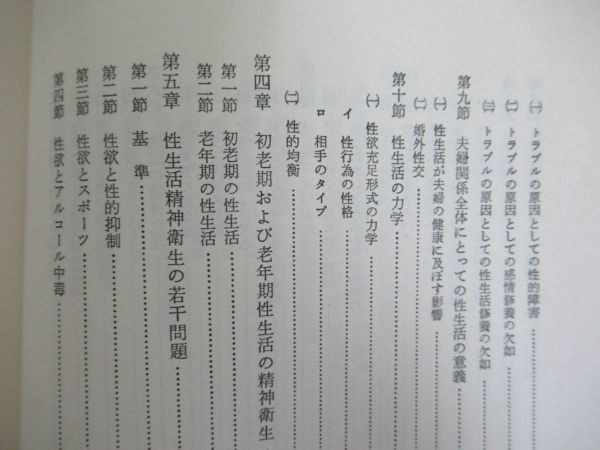 ㈠ トラブルの原因としての性的障害
㈡ トラブルの原因としての感情修養の欠如
㈢ トラブルの原因としての性生活修養の欠如
第九節 夫婦関係全体にとっての性生活の意義
㈠ 性生活が夫婦の健康に及ぼす影響
㈡ 婚外性交
第十節 性生活の力学
㈠ 性欲充足形式の力学
イ 性行為の性格
ロ 相手のタイプ
㈡ 性的均衡
第四章 初老期および老年期性生活の精神衛生
第一節 初老期の性生活
第二節 老年期の性生活
第五章 性生活精神衛生の若干問題
第一節 基準
第二節 性欲と性的抑制
第三節 性欲とスポーツ
第四節 性欲とアルコール中毒